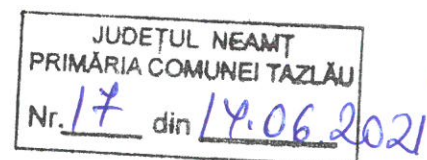 JUDEȚUL NEAMȚ
PRIMĂRIA COMUNEI TAZLĂU
Nr. 17 din 14.06.2021